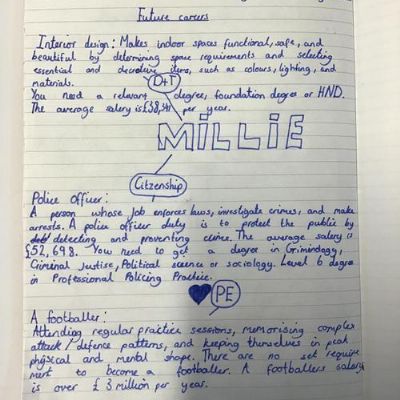 Future careers
Interior design: Makes indoor spaces functional, safe, and
beautiful by determining space requirements and selecting
essential and decrative items, such as colours, lighting, and
materials.
D+T
You need a relevant degree, foundation degree or HND.
The average salary is £38,541 per year.
MILLIE
Citzenship
Police officer:
A person whose job enforces laws, investigate crimes, and make
arrests. A police officer duty is to protect the public by
detecting and preventing crime. The average salary is
£52,698. You need to get a degree in Criminology,
Criminal justise, Political science or sociology. Level 6 degree
in Professional Policing Practice.
PE
A footballer:
Attending regular practice sessions, memorising complex
attack/defence patterns, and keeping themselves in peak
physical and mental shape. There are no set require
ment to become a footballer. A footballers salary
is over £3 million per year.